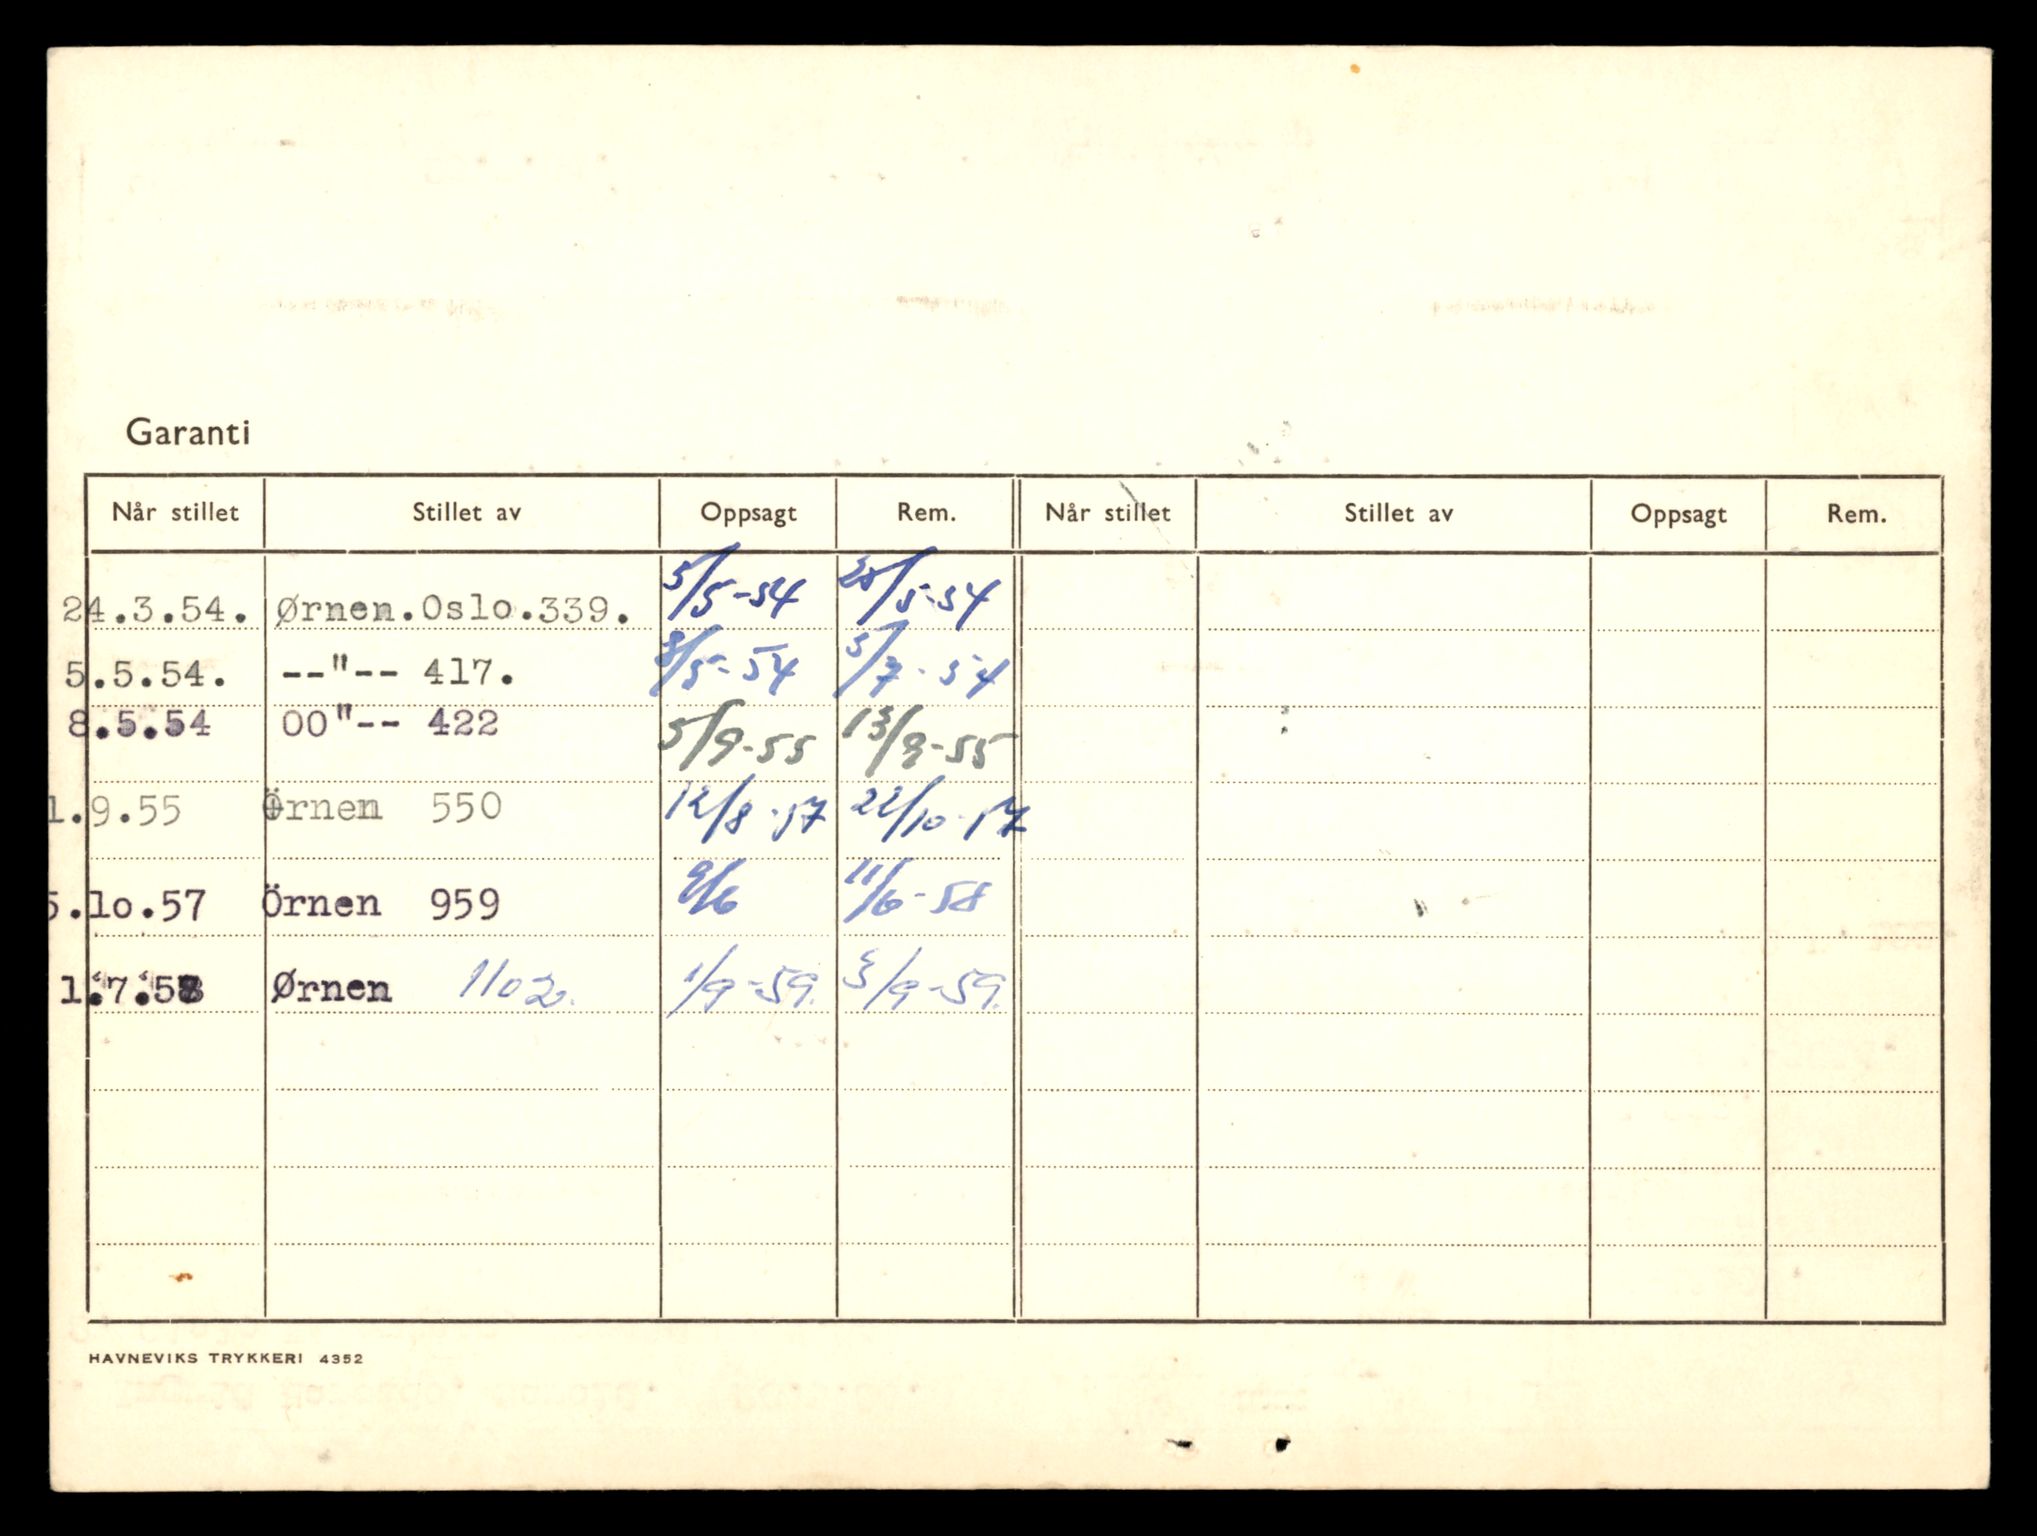 Garanti
Når stillet Stillet av Oppsagt Rem. Når stillet Stillet av Oppsagt Rem.
24.3.54. Ørnen.Oslo.339. 5/5-54 /5-54
5.5.54. --"-- 417. 8/5-54 5/7-54
8.5.54 OO"-- 422 5/9-55 13/9-55
1.9.55 Ørnen 550 12/8-57 22/10-57
5.lo.57 Örnen 959 9/6 11/6-58
1.7.58 Ørnen 1102. 1/9-59. 3/9-59.
HAVNEVIKS TRYKKERI 4352